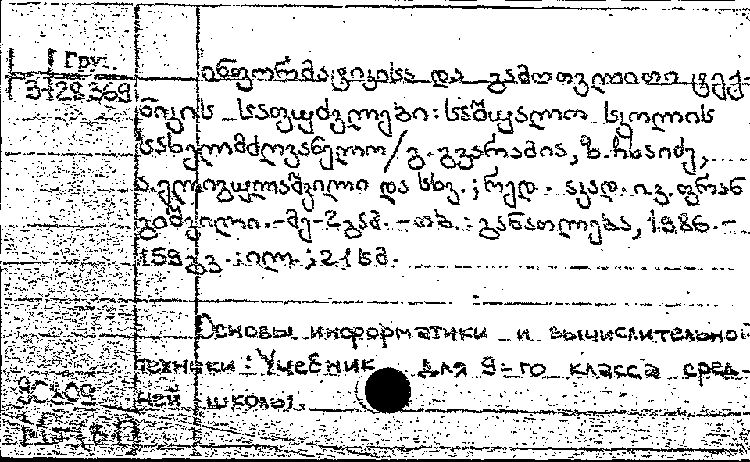 Груз.
3-128.369
ინფორმატიკისა და გამოთვლითი ტექ-
ნიკის საფუძვლები: საშუალო სკოლის
სახელმძღვანელო/გ. გვარამია,
და სხვ.; რედ. აკად. ივ. ფრან
გიშვილი.-მე-2 გამ.-თბ.: განათლება, 1986.-
159 გვ.: ილ.; 21 სმ.
Основы информатики и вычислительной
техники: Учебник для 9-го класса сред-
ней школы.